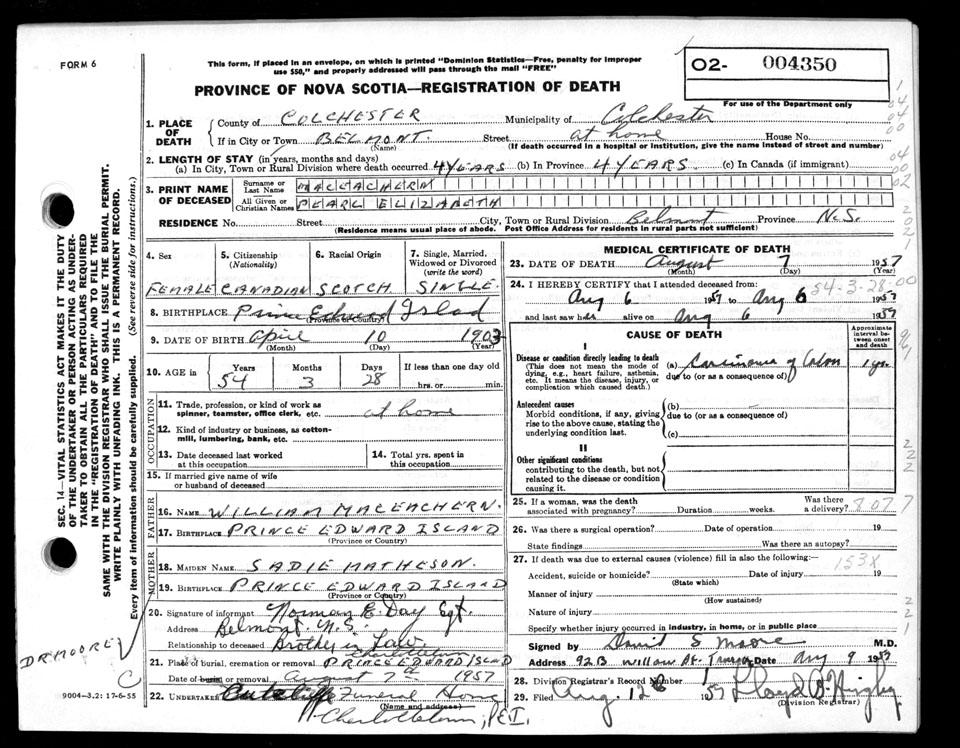 FORM 6
This form, if placed in an envelope, on which is printed "Dominion Statistics—Free, penalty for improper
use $50," and properly addressed will pass through the mail "FREE"
O2- 004350
For use of the Department only
PROVINCE OF NOVA SCOTIA—REGISTRATION OF DEATH
1. PLACE OF DEATH
County of COLCHESTER Municipality of Colchester
If in City or Town BELMONT. Street at home House No.
(Name) (If death occurred in a hospital or institution, give the name instead of street and number)
2. LENGTH OF STAY (in years, months and days)
(a) In City, Town or Rural Division where death occurred 4 YEARS (b) In Province 4 YEARS (c) In Canada (if immigrant)
3. PRINT NAME OF DECEASED
Surname or Last Name MACEACHERN
All Given or Christian Names PEARL ELIZABETH
RESIDENCE No. Street City, Town or Rural Division Belmont Province N.S.
(Residence means usual place of abode. Post Office Address for residents in rural parts not sufficient)
4. Sex 5. Citizenship (Nationality) 6. Racial Origin 7. Single, Married, Widowed or Divorced (write the word)
FEMALE CANADIAN SCOTCH SINGLE.
8. BIRTHPLACE Prince Edward Islad
(Province or Country)
9. DATE OF BIRTH April 10 1903
(Month) (Day) (Year)
10. AGE in Years Months Days If less than one day old
54 3 28 hrs. or min.
OCCUPATION
11. Trade, profession, or kind of work as
spinner, teamster, office clerk, etc. at home
12. Kind of industry or business, as cotton-
mill, lumbering, bank, etc.
13. Date deceased last worked
at this occupation
14. Total yrs. spent in
this occupation
15. If married give name of wife
or husband of deceased
FATHER
16. NAME WILLIAM MACEACHERN.
17. BIRTHPLACE PRINCE EDWARD ISLAND
(Province or Country)
MOTHER
18. MAIDEN NAME. SADIE MATHESON.
19. BIRTHPLACE PRINCE EDWARD ISLAND
(Province or Country)
20. Signature of informant Norman E. Day Sgt.
Address Belmont. N.S.
Relationship to deceased Brother in Law.
Charlottetown
21. Place of burial, cremation or removal PRINCE EDWARD ISLAD
Date of burial or removal August 7th 1957
22. UNDERTAKER Cutcliffe Funeral Home
(Name and address)
Charlottetown, P.E.I.
MEDICAL CERTIFICATE OF DEATH
23. DATE OF DEATH August 7 1957
(Month) (Day) (Year)
24. I HEREBY CERTIFY that I attended deceased from:
Aug 6 1957 to Aug 6 1957
54-3-28-00
and last saw her alive on Aug 6 1957
CAUSE OF DEATH
Approximate interval between onset and death
I
Disease or condition directly leading to death
(This does not mean the mode of
dying, e.g., heart failure, asthenia,
etc. It means the disease, injury, or
complication which caused death.)
(a) Carcinoma of Colon 1 yr.
due to (or as a consequence of)
Antecedent causes
Morbid conditions, if any, giving
rise to the above cause, stating the
underlying condition last.
(b)
due to (or as a consequence of)
(c)
II
Other significant conditions
contributing to the death, but not
related to the disease or condition
causing it.
25. If a woman, was the death
associated with pregnancy? Duration weeks. Was there a delivery?
8077
26. Was there a surgical operation? Date of operation 19
State findings Was there an autopsy?
27. If death was due to external causes (violence) fill in also the following:
153X
Accident, suicide or homicide? Date of injury 19
(State which)
Manner of injury
(How sustained)
Nature of injury
Specify whether injury occurred in industry, in home, or in public place
Signed by David S Moore M.D.
Address 92B Willow St. Truro Date Aug 9 1957
28. Division Registrar's Record Number
29. Filed Aug. 12 1957 Lloyd
(Division Registrar)
SEC. 14—VITAL STATISTICS ACT MAKES IT THE DUTY
OF THE UNDERTAKER OR PERSON ACTING AS UNDER-
TAKER TO OBTAIN ALL THE PARTICULARS REQUIRED
IN THE "REGISTRATION OF DEATH" AND TO FILE THE
SAME WITH THE DIVISION REGISTRAR WHO SHALL ISSUE THE BURIAL PERMIT.
WRITE PLAINLY WITH UNFADING INK. THIS IS A PERMANENT RECORD.
Every item of information should be carefully supplied. (See reverse side for instructions.)
DR MOORE
C
9004-3.2: 17-6-55